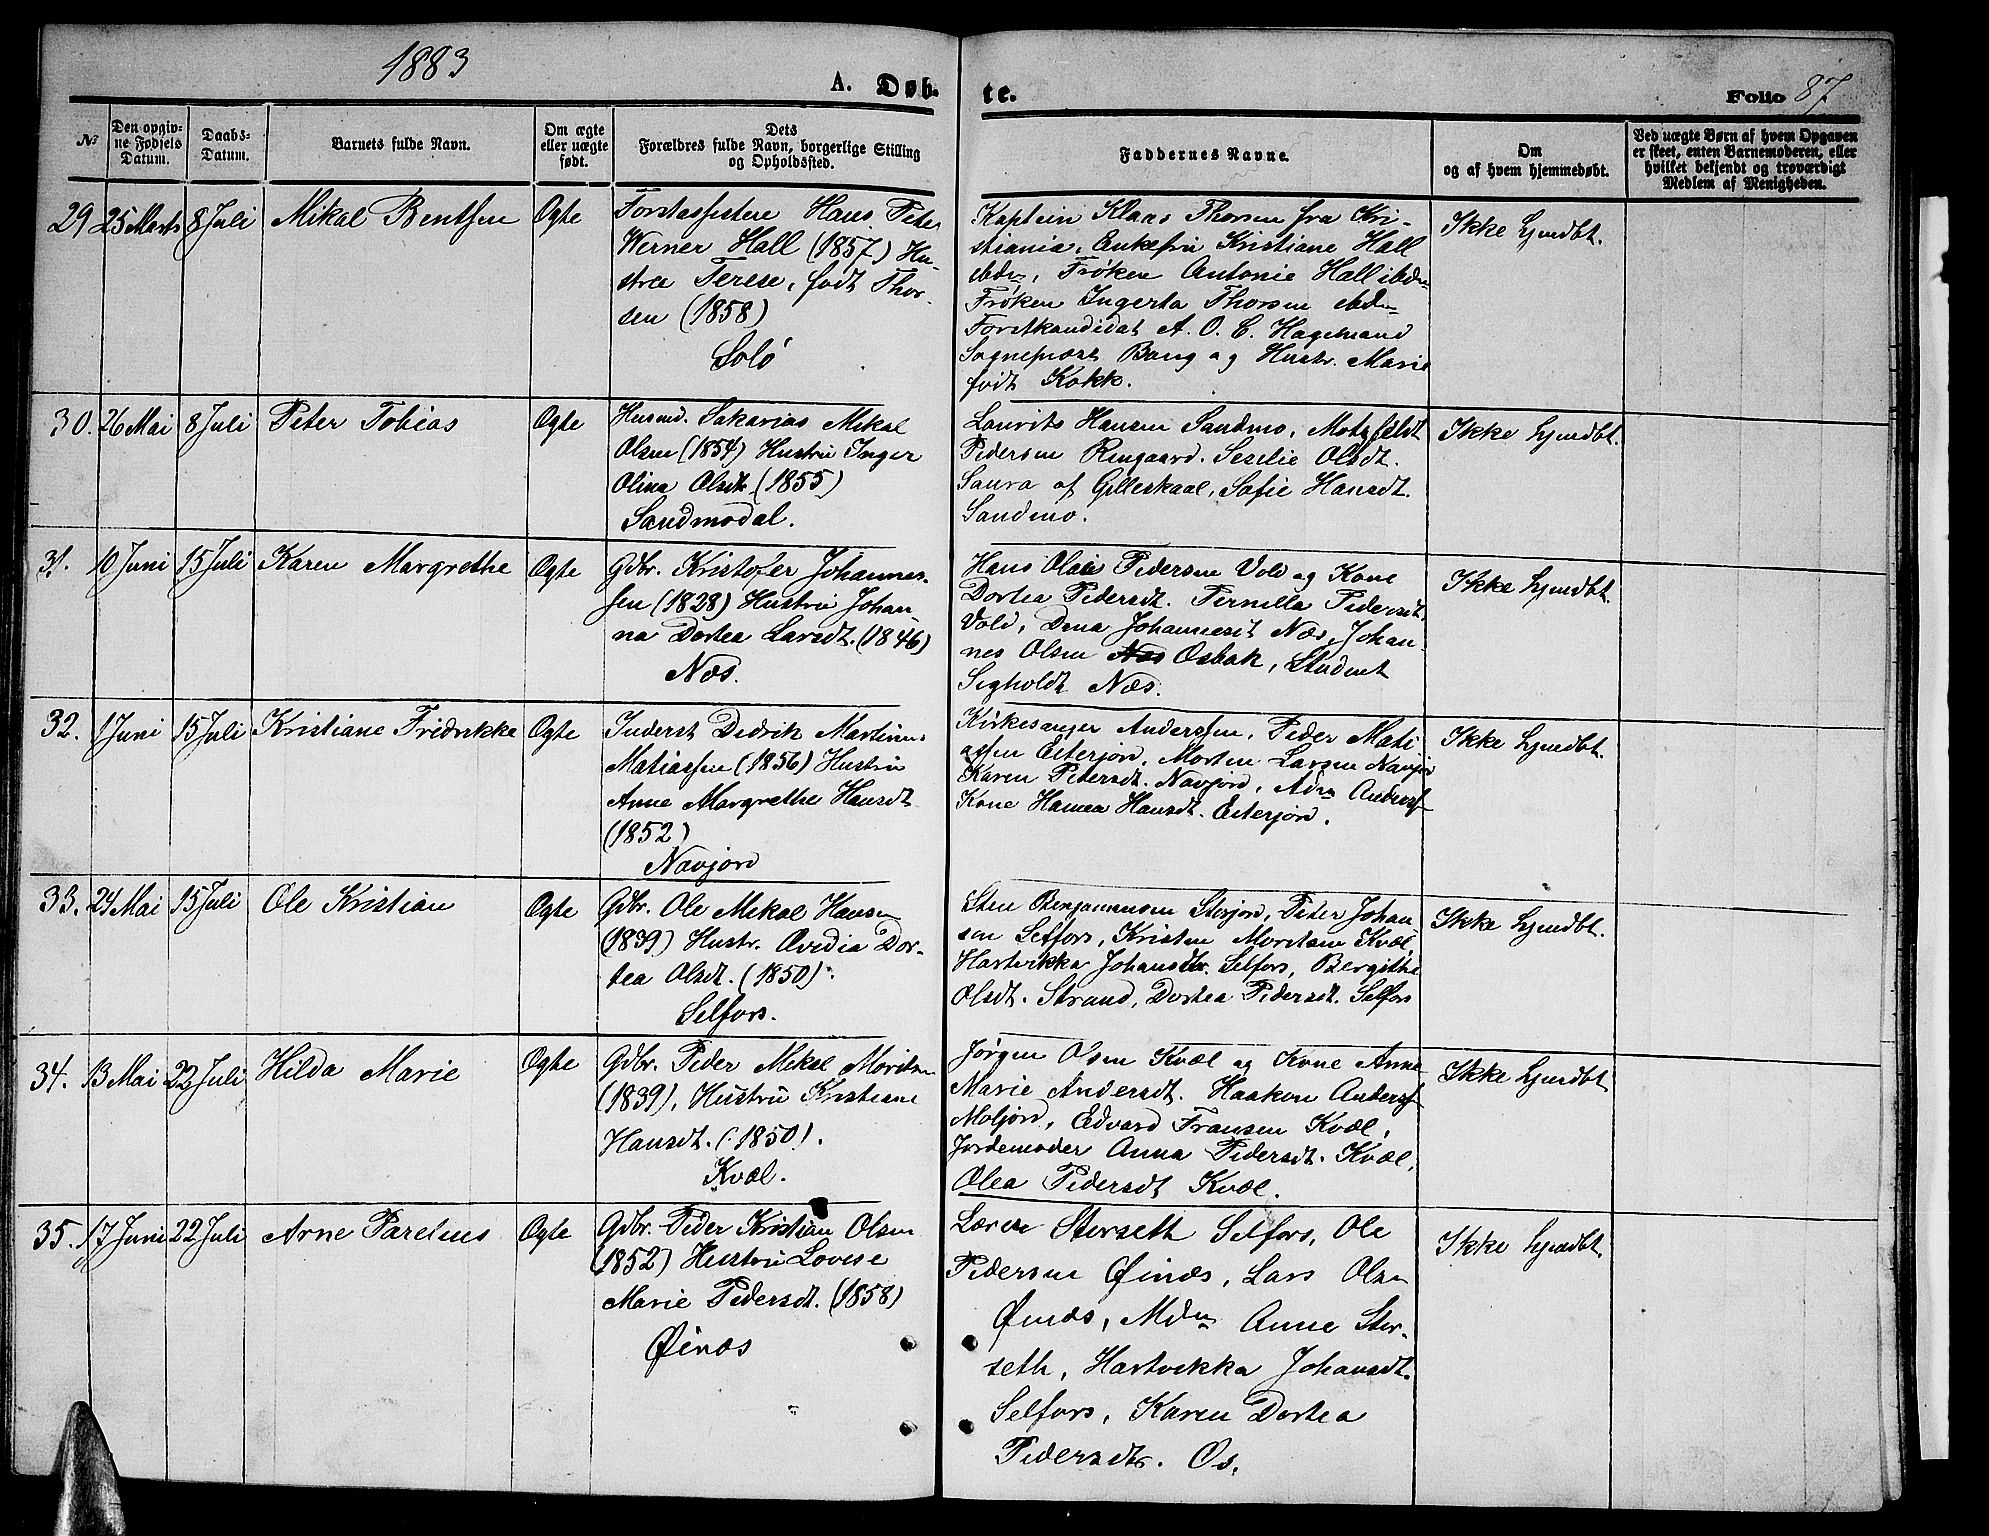 1883
A. Døb-
te.
Folio 87
No
Den opgiv-
ne Fødsels
Datum.
Daabs-
Datum.
Barnets fulde Navn.
Om ægte
eller uægte
født.
Dets
Forældres fulde Navn, borgerlige Stilling
og Opholdssted.
Faddernes Navne.
Om
og af hvem hjemmedøbt.
Ved uægte Børn af hvem Opgaven
er skeet, enten Barnemoderen, eller
hvilket bekjendt og troværdigt
Medlem af Menigheden.
29 25 Marts 8 Juli Mikal Bentsen Ogte
Forstassistent Hans Peter
Werner Hall (1857) Hu-
stru Terese, født Thor-
sen (1858)
Solø
Kaptein Klaas Thorsen fra Kri-
stiania, Enkefru Kristiane Hall
ibdn, Frøken Antonie Hall ibdn
Frøken Ingerta Thorsen ibdn
Forstkandidat A. O. C. Hagemand
Sogneprest Bang og Hustr. Marie
født Kokk.
Ikke hjmdbt.
30. 26 Mai 8 Juli Peter Tobias Ogte
Husmd. Sakarias Mikal
Olsen (1854) Hustru Inger
Olina Olsdt. (1855)
Sandmodal.
Laurits Hansen Sandmo, Motzfeldt
Pedersen Rengaard. Sesilie Olsdt.
Saura af Gilleskaal, Sofie Hansdt.
Sandmo.
Ikke hjmdbt.
31. 10 Juni 15 Juli Karen Margrethe Ogte
Gdbr. Kristofer Johannes-
sen (1828) Hustru Johan
na Dortea Larsdt. (1846)
Næs.
Hans Olai Pedersen Vold og Kone
Dortea Pedersdt. Pernilla Pedersdt.
Vold, Dina Johannesdt Næs, Johan
nes Olsen Osbak, Student
Sigholdt Næs.
Ikke hjmdbt.
32. 1 Juni 15 Juli Kristiane Fredrikke Ogte
Inderst Dedrik Martinus
Matiassen (1856) Hustru
Anne Margrethe Hansdt
(1852)
Navjord
Kirkesanger Anderssen, Peder Mati-
assen Eiterjord, Morten Larsen Navjord
Karen Pedersdt. Navjord, Andersf
Kone Hansdt. Eiterjord.
Ikke hjmdbt.
33. 24 Mai 15 Juli Ole Kristian Ogte
Gdbr. Ole Mikal Hansen
(1839) Hustr. Ovedia Dor-
tea Olsdt. (1850).
Selfors.
Sten Benjaminsen Storjord, Peter Johan
sen Selfors, Kristen Moritsen Kvæl,
Hartvikka Johansdtr. Selfors, Bergithe
Olsdt. Strand, Dortea Pedersdt. Selfors
Ikke hjmdbt.
34. 13 Mai 22 Juli Hilda Marie Ogte
Gdbr. Peder Mikal Moritsen
(1839), Hustru Kristiane
Hansdt. (1850).
Kvæl.
Jørgen Olsen Kvæl og Kone Anne
Marie Andersdt. Haakon Andersf
Moljord, Edvard Fransen Kvæl,
Jordemoder Anna Pedersdt. Kvæl,
Olea Pedersdt Kvæl.
Ikke hjmdbt
35. 17 Juni 22 Juli Arne Parelius Ogte
Gdbr. Peder Kristian Olsen
(1852) Hustru Lovise
Marie Pedersdt. (1858)
Øinæs
Lærer Storseth Selfors, Ole
Pedersen Øinæs, Lars Olsen
Øinæs, Mdn Anne Stor-
seth, Hartvikka Johansdt.
Selfors, Karen Dortea
Pedersdtr. Os.
Ikke hjmdbt.